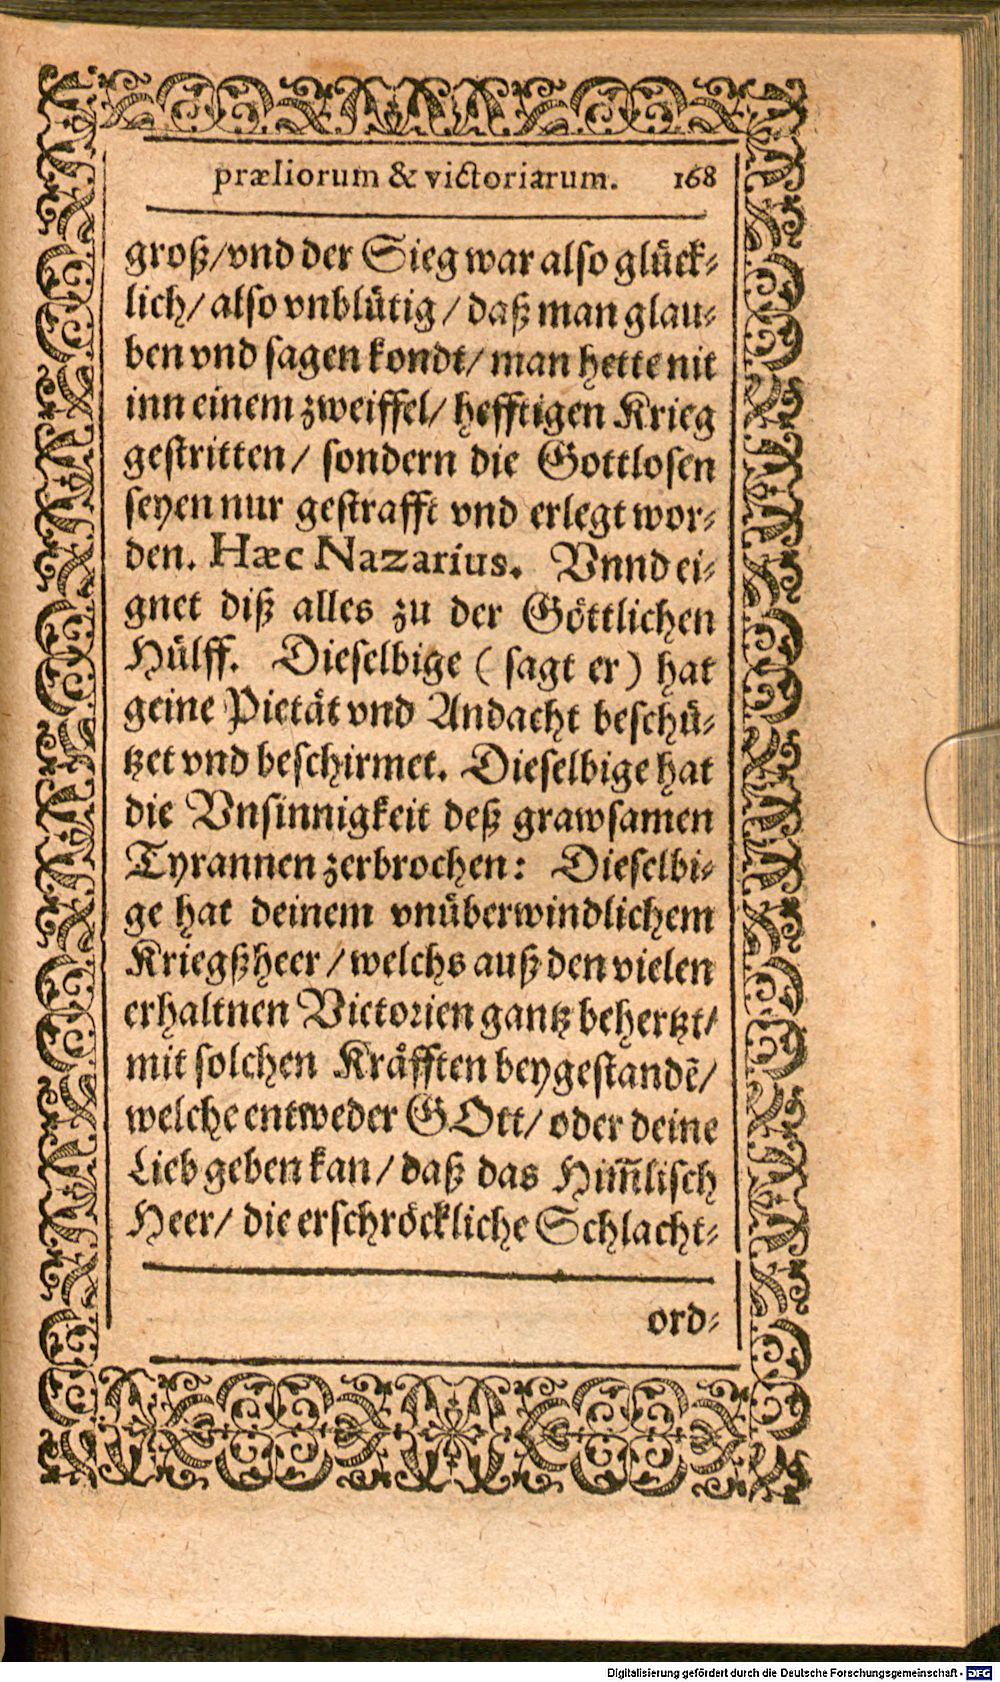 præliorum & victoriarum. 168
groß/vnd der Sieg war also glück-
lich/ also vnblütig/ daß man glau-
ben vnd sagen kondt/ man hette nit
inn einem zweiffel/ hefftigen Krieg
gestritten/ sondern die Gottlosen
seyen nur gestrafft vnd erlegt wor-
den. Hæc Nazarius. Vnnd ei-
gnet diß alles zu der Göttlichen
Hülff. Dieselbige (sagt er) hat
geine Pietät vnd Andacht beschü-
tzet vnd beschirmet. Dieselbige hat
die Vnsinnigkeit deß grawsamen
Tyrannen zerbrochen: Dieselbi-
ge hat deinem vnüberwindlichem
Kriegßheer/welchs auß den vielen
erhaltnen Victorien gantz behertzt/
mit solchen Kräfften beygestandẽ/
welche entweder GOtt/ oder deine
Lieb geben kan/ daß das Him̃lisch
Heer/ die erschröckliche Schlacht-
ord-
Digitalisierung gefördert durch die Deutsche Forschungsgemeinschaft - DFG